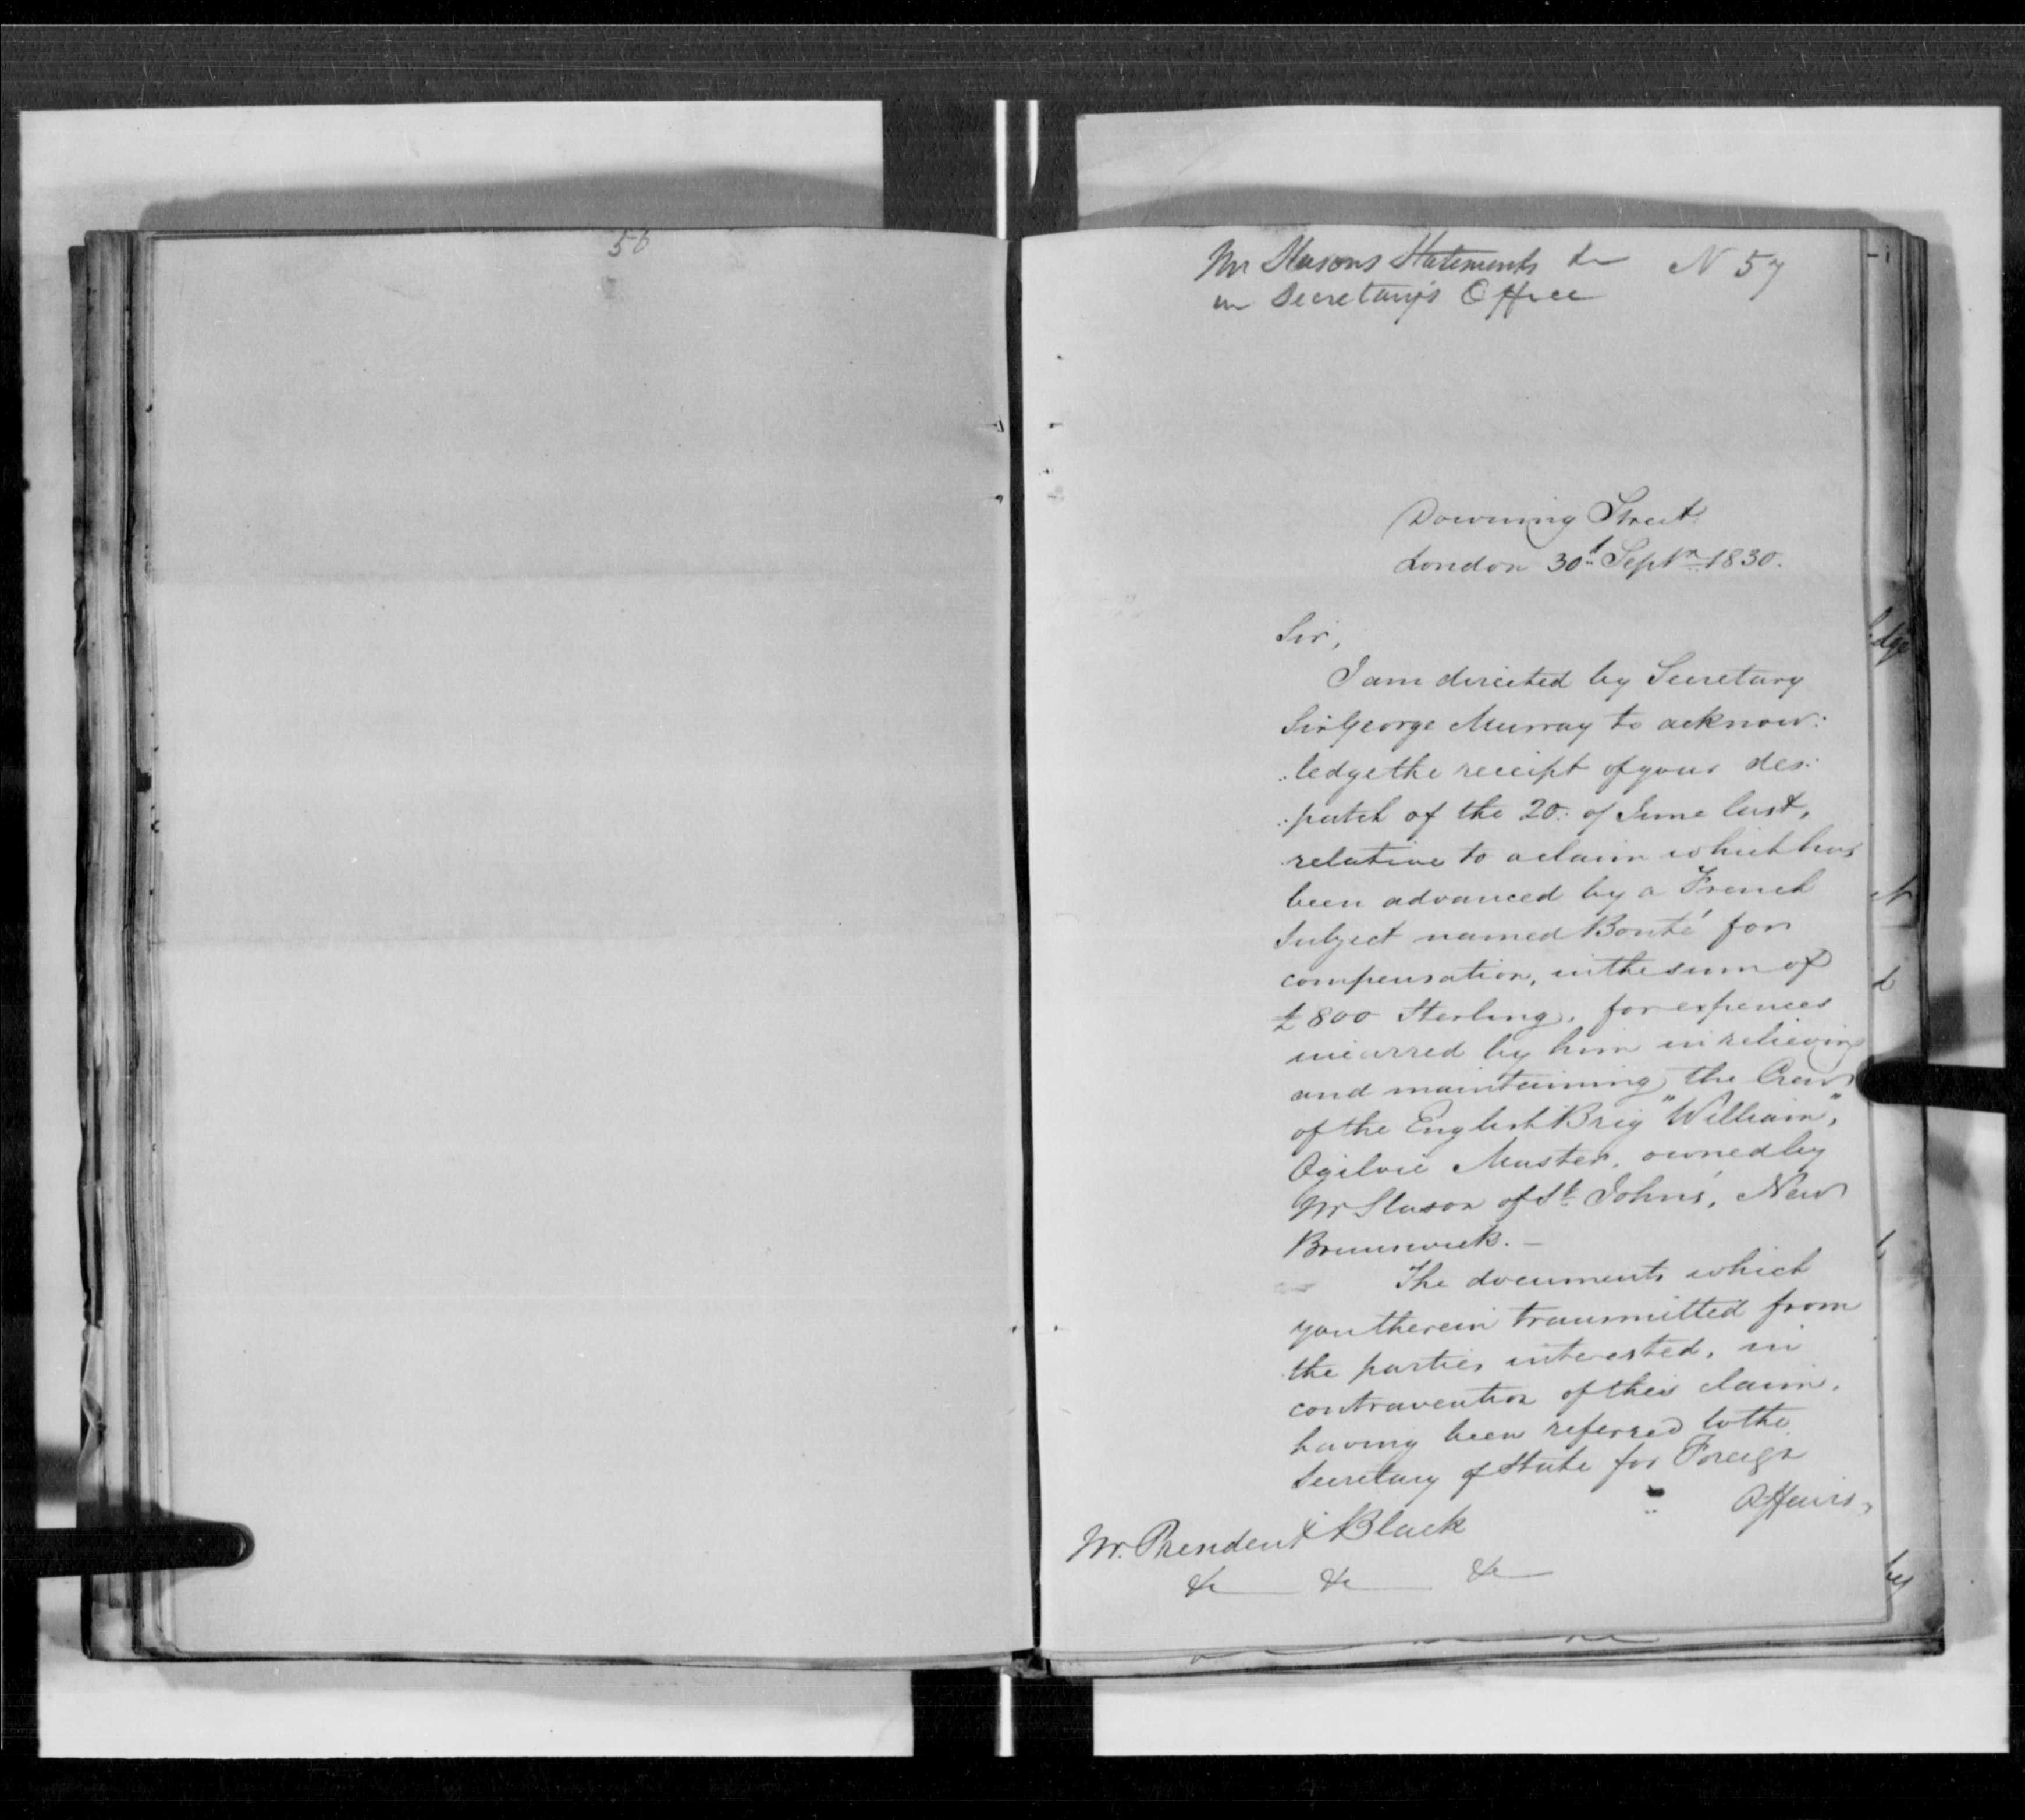 56
Mr Slasons Statements &c N 57
in Secretary's Office
Downing Street
London 30th Septr 1830.
Sir,
I am directed by Secretary
Sir George Murray to acknow:
:ledge the receipt of your des:
:patch of the 20: of June last,
relative to a claim which has
been advanced by a French
Subject named Bonté for
compensation, in the sum of
£800 Sterling, for expences
incurred by him in relieving
and maintaining the Crew
of the English Brig "William",
Ogilvie Master, owned by
Mr Slason of St. John's, New
Brunswick. —
The documents which
you therein transmitted from
the parties interested, in
contravention of this claim,
having been referred to the
Secretary of State for Foreign
Affairs,
Mr. President Black
&c — &c — &c —